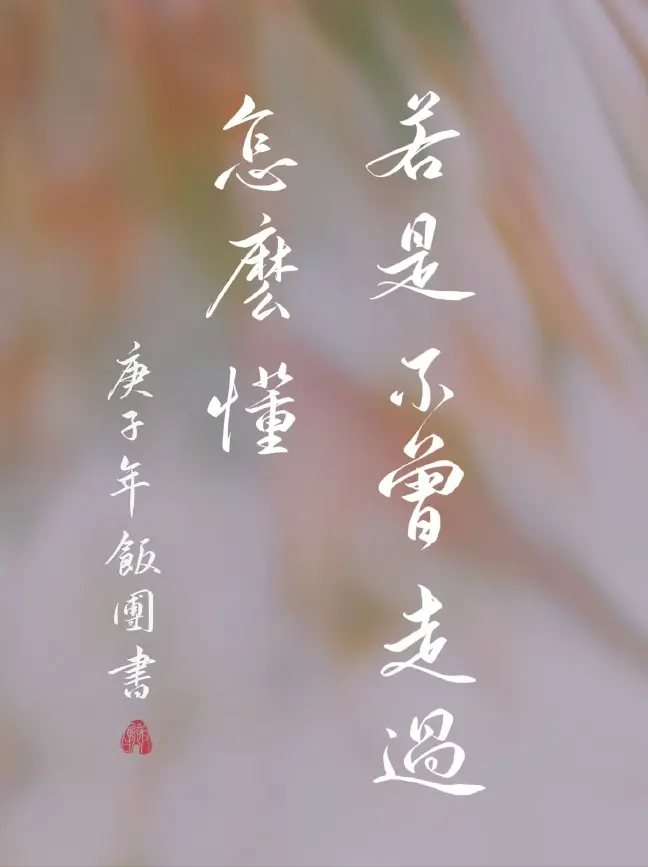 若是不曾走過
怎麼懂
庚子年飯團書